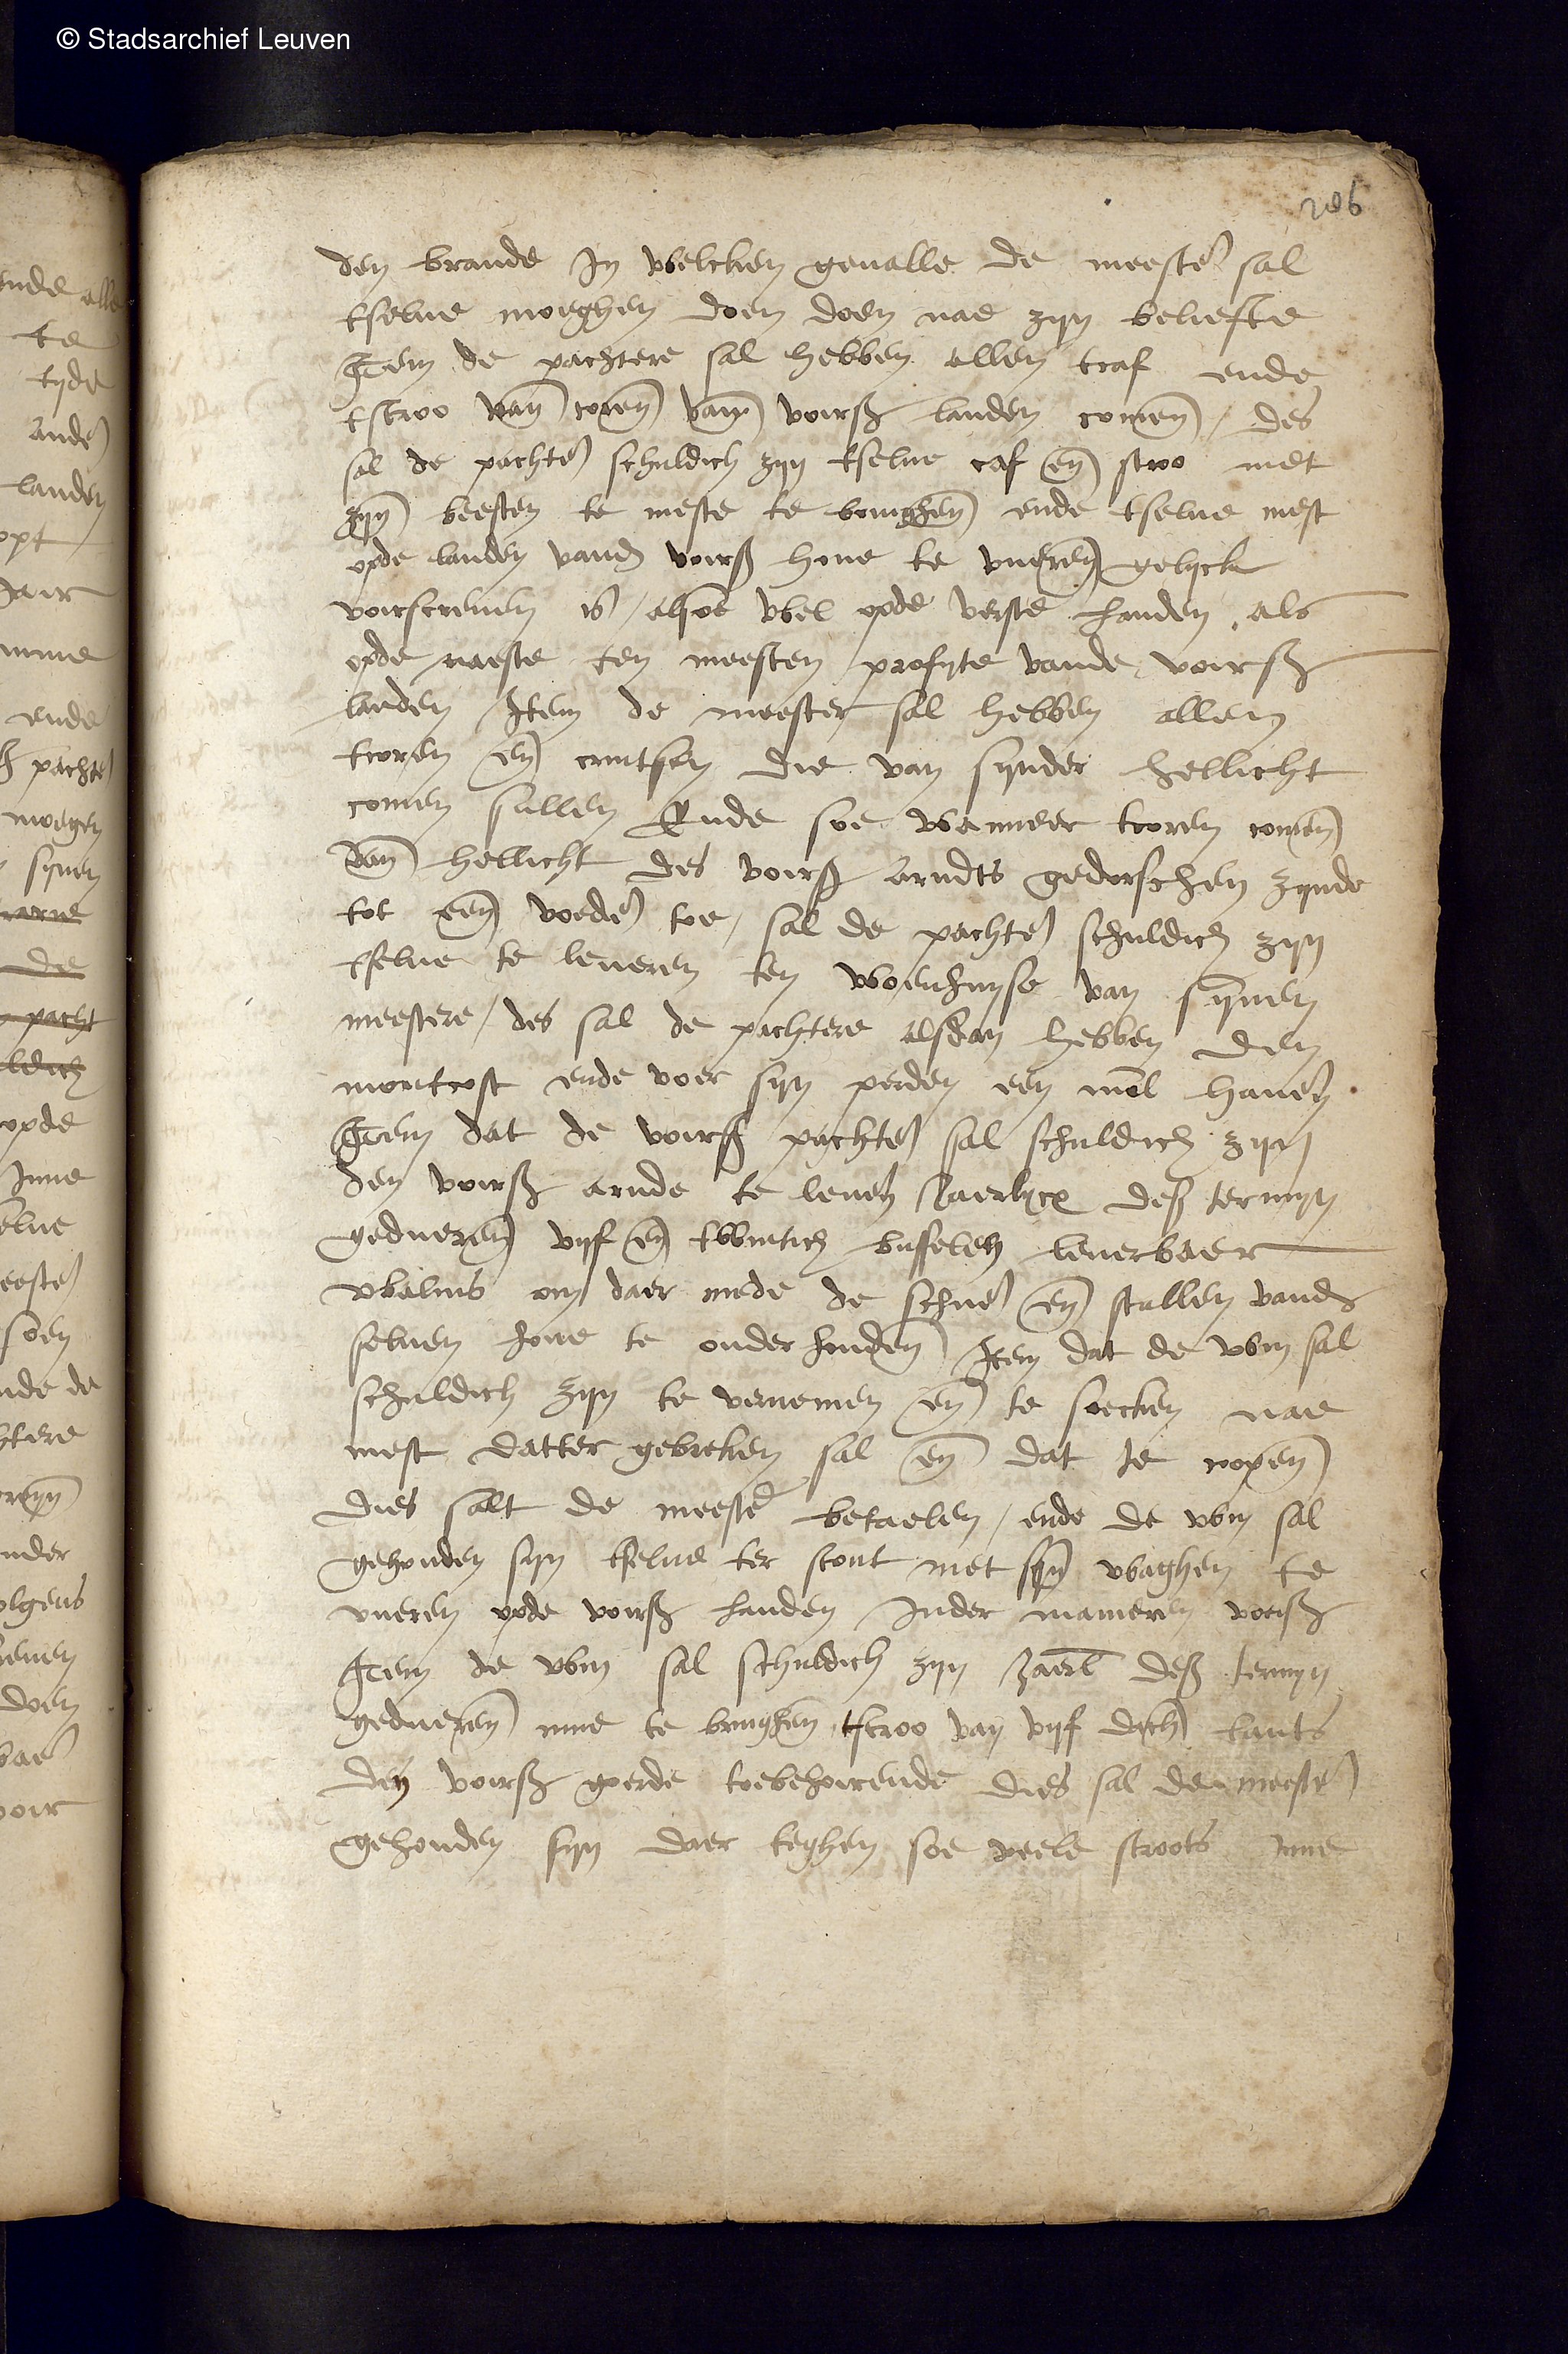 © Stadsarchief Leuven
206
den brande In welcken gevalle de meester sal
tselve moeghen doen doen nae zyn beliefte
Item de pachtere sal hebben allen tcaf ende
tstroo van coren van voirs landen comen / des
sal de pachter schuldich zyn tselve caf en stroo met
zyn beesten te meste te bringhen ende tselve mest
opde landen vand voirs hove te vueren gelyck
voirscreven is / alsoe wel opde verste landen als
opde naeste ten meesten profyte vande voirs
landen Item de meester sal hebben allen
tcoren en die van synder hellicht
comen sullen Ende soe wanneer tcoren comen
van hellicht des voirs Arndts gedorschen zynde
tot een voeder toe / sal de pachter schuldich zyn
tselve te leveren ten woenhuyse van synen
meestere / des sal de pachtere alsdan hebben den
montcost ende voer syn perden een mol haver
Item dat de voirs pachter sal schuldich zyn
den voirs arnde te leveren Jaerlycx des termyn
geduerende vyf en twintich busselen leverbaer
walms om daer mede de schuer en stallen vand
selven hove te onderhouden Item dat de win sal
schuldich zyn te vernemen en te soecken nae
mest datter gebreken sal en dat te copen
dies salt de meester betaelen / ende de win sal
gehouden syn tselve ter stont met syn waghen te
vueren opde voirs landen Inder manieren voirs
Item de win sal schuldich zyn Jaerl des termyn
geduerende inne te bringhen tstroo van vyf lants
den voirs goede toebehoirende dies sal de meester
gehouden syn daer teghen soe veele stroots inne